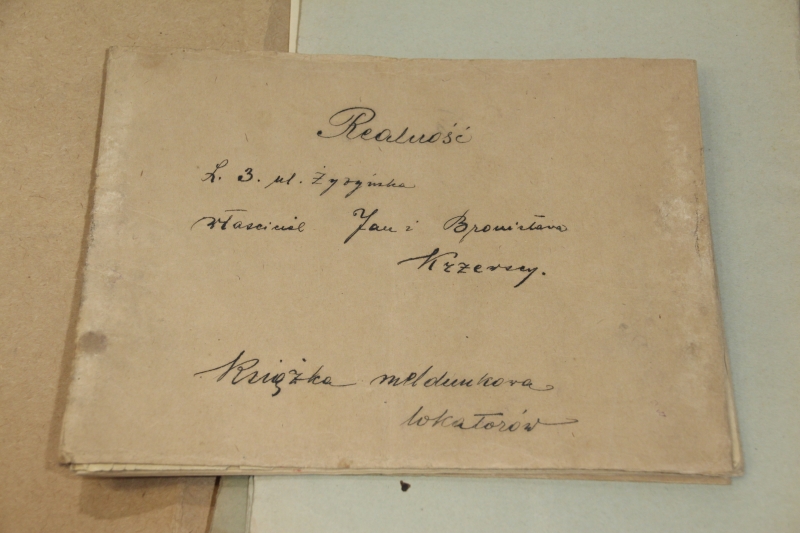 Realność
L. 3. ul. Żyzyńska
właściciel Jan i Bronisława
Krzewscy.
Książka meldunkowa
lokatorów